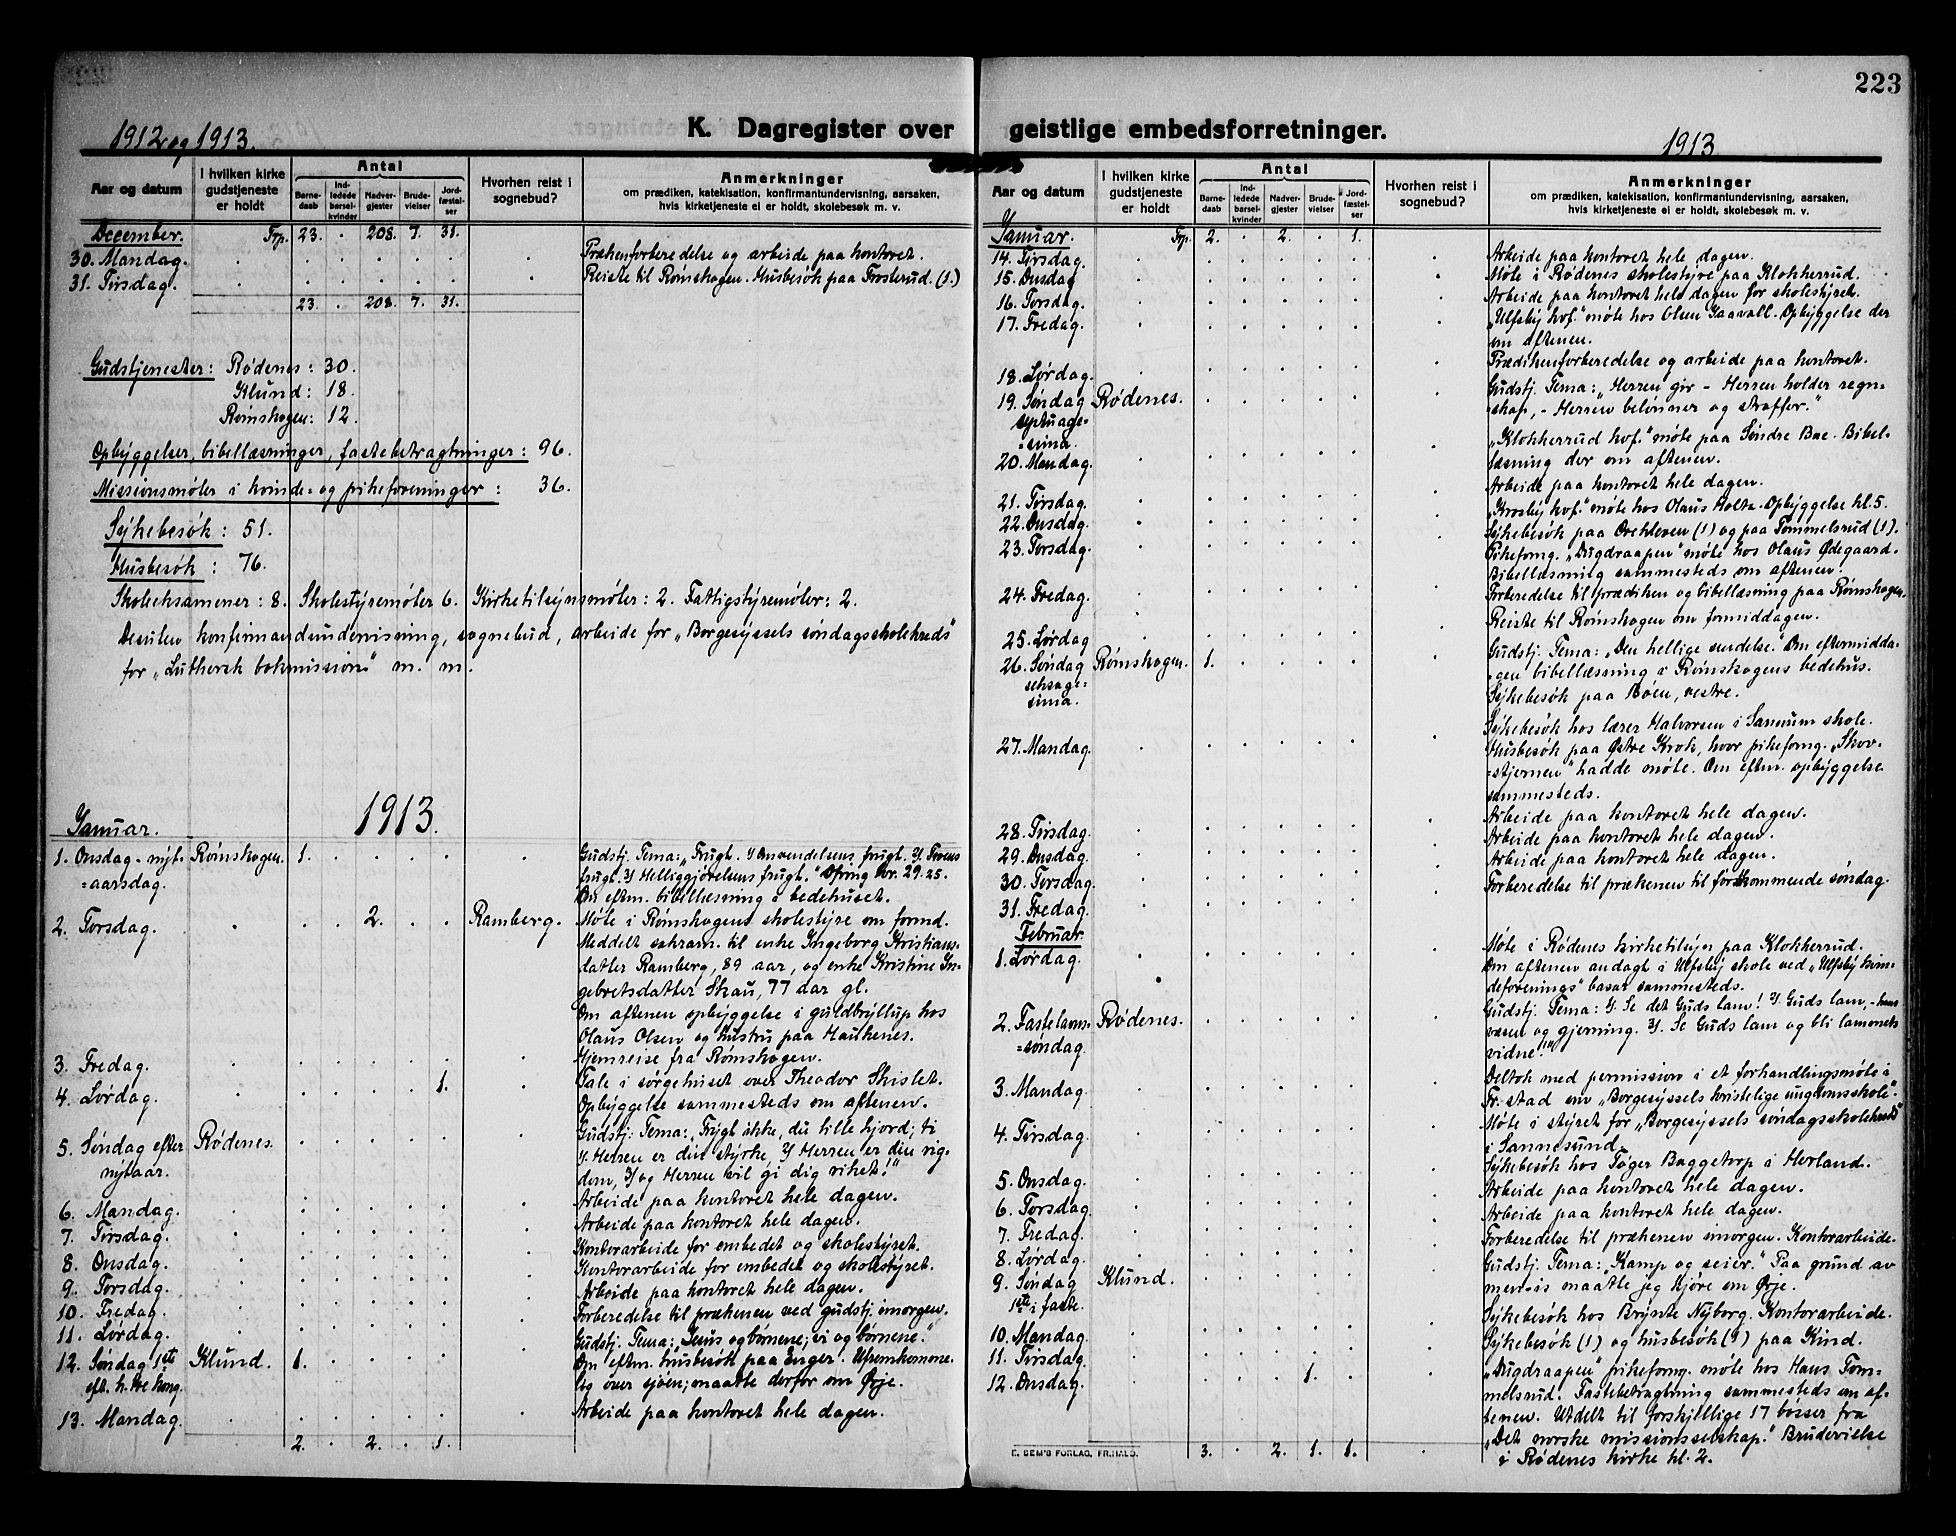 223
1912 og 1913.
K. Dagregister over geistlige embedsforretninger.
1913
Aar og datum
I hvilken kirke gudstjeneste er holdt
Antal
Barnedaab
Indledede barselkvinder
Nadvergjester
Brudevielser
Jordfæstelser
Hvorhen reist i sognebud?
Anmerkninger
om prædiken, katekisation, konfirmantundervisning, aarsaken, hvis kirketjeneste ei er holdt, skolebesøk m. v.
December. Frp. 23. . 208. 7. 31.
30. Mandag. Prækenforberedelse og arbeide paa kontoret.
31. Tirsdag. Reiste til Rømskogen. Husbesøk paa Frosterud. (1.)
23. . 208. 7. 31.
Gudstjenester: Rødenes: 30.
Klund: 18.
Rømskogen: 12.
Opbyggelser, bibellæsninger, fastebetragtninger: 96.
Missionsmøter i kvinde- og pikeforeninger: 36.
Sykebesøk: 51.
Husbesøk: 76.
Skoleeksamener: 8. Skolestyremøter 6. Kirketilsynsmøter: 2. Fattigstyremøter: 2.
Desuten konfirmandundervisning, sognebud, arbeide for „Borgesyssels søndagsskolekreds"
for „Luthersk bokmission" m. m.
1913.
Januar.
1. Onsdag - nyt= Rømskogen. 1. Gudstj. Tema: „Frugt. 1) Omvendelsens frugt. 2) Troens
=aarsdag. frugt. 3) Helliggjørelsens frugt." Ofring kr. 29.25.
Om eftm. bibellæsning i bedehuset.
2. Torsdag. 2. Ramberg. Møte i Rømskogens skolestyre om formd.
Meddelt sakram. til enke Ingeborg Kristians-
datter Ramberg, 89 aar, og enke Kristine In-
gebretsdatter Skau, 77 aar gl.
Om aftenen opbyggelse i guldbryllup hos
Olaus Olsen og hustru paa Haukenes.
3. Fredag. Hjemreise fra Rømskogen.
4. Lørdag. 1. Tale i sørgehuset over Theodor Skislet.
Opbyggelse sammesteds om aftenen.
5. Søndag efter Rødenes. Gudstj. Tema: „Frygt ikke, du lille hjord; ti
nytaar. 1) Herren er din styrke, 2) Herren er din rig-
dom, 3) og Herren vil gi dig riket!"
6. Mandag. Arbeide paa kontoret hele dagen.
7. Tirsdag. Arbeide paa kontoret hele dagen.
8. Onsdag. Kontorarbeide for embedet og skolestyret.
9. Torsdag. Kontorarbeide for embedet og skolestyret.
10. Fredag. Arbeide paa kontoret hele dagen.
11. Lørdag. Forberedelse til prækenen ved gudstj. imorgen.
12. Søndag 1ste Klund. 1. Gudstj. Tema: „Jesus og børnene; vi og børnene."
eft. h. tre kong. Om eftm. husbesøk paa Enger. Ufremkomme-
lig over sjøen; maatte derfor om Ørje.
13. Mandag. Arbeide paa kontoret hele dagen.
2. . 2. . 1.
Aar og datum
I hvilken kirke gudstjeneste er holdt
Antal
Barnedaab
Indledede barselkvinder
Nadvergjester
Brudevielser
Jordfæstelser
Hvorhen reist i sognebud?
Anmerkninger
om prædiken, katekisation, konfirmantundervisning, aarsaken, hvis kirketjeneste ei er holdt, skolebesøk m. v.
Januar. Frp. 2. . 2. . 1.
14. Tirsdag. Arbeide paa kontoret hele dagen.
15. Onsdag Møte i Rødenes skolestyre paa Klokkerrud.
16. Torsdag. Arbeide paa kontoret hele dagen for skolestyret.
17. Fredag. „Ulfsby kvf." møte hos Olsen Gaavall. Opbyggelse der
om aftenen.
18. Lørdag. Prædikenforberedelse og arbeide paa kontoret.
19. Søndag Rødenes. Gudstj. Tema: „Herren gir - Herren holder regn=
septuage= =skap, - Herren belønner og straffer."
=sima.
20. Mandag. „Klokkerrud kvf." møte paa Søndre Bae. Bibel-
læsning der om aftenen.
21. Tirsdag. Arbeide paa kontoret hele dagen.
22. Onsdag. „Krosby kvf." møte hos Olaus Holta. Opbyggelse kl. 5.
23. Torsdag. Sykebesøk paa (1) og paa Tommelsrud (1).
Pikeforng. „Dugdraapen" møte hos Olaus Ødegaard.
Bibellæsning sammesteds om aftenen.
24. Fredag. Forberedelse til prædiken og bibellæsning paa Rømskogen.
25. Lørdag Reiste til Rømskogen om formiddagen.
26. Søndag Rømskogen. 1. Gudstj. Tema: „Den hellige sendelse." Om eftermidda-
seksage= =gen bibellæsning i Rømskogens bedehus.
sima. Sykebesøk paa Böen, vestre.
27. Mandag. Sykebesøk hos lærer Halvorsen i Sannum skole.
Husbesøk paa Østre Krok, hvor pikeforng. „Skov-
=stjernen" hadde møte. Om eftm. opbyggelse
sammesteds.
28. Tirsdag. Arbeide paa kontoret hele dagen.
29. Onsdag. Arbeide paa kontoret hele dagen.
30. Torsdag. Arbeide paa kontoret hele dagen.
31. Fredag. Forberedelse til prækenen til førstkommende søndag.
Februar.
1. Lørdag. Møte i Rødenes kirketilsyn paa Klokkerrud.
Om aftenen andagt i Ulfsby skole ved „Ulfsby kvin-
deforenings" basar sammesteds.
2. Fastelavns= Rødenes. Gudstj. Tema: 1) Se det Guds lam! 2) Guds lam, - hans
=søndag. væsen og gjerning. 3) Se Guds lam og bli lammets
vidne!"
3. Mandag. Deltok med permission i et forhandlingsmøte i
Fr.stad om „Borgesyssels kristelige ungdomsskole".
4. Tirsdag. Møte i styret for „Borgesyssels søndagsskolekreds"
i Sannesund.
5. Onsdag. Sykebesøk hos Tøger Buggetorp i Herland.
6. Torsdag. Arbeide paa kontoret hele dagen.
7. Fredag. Arbeide paa kontoret hele dagen.
8. Lørdag. Forberedelse til prækenen imorgen. Kontorarbeide.
9. Søndag Klund. Gudstj. Tema: „Kamp og seier." Paa grund av
1ste i faste. maatte jeg kjøre om Ørje.
10. Mandag. Sykebesøk hos Brynte Nyborg. Kontorarbeide.
11. Tirsdag. Sykebesøk (1) og husbesøk (1) paa Kind.
12. Onsdag. 1. „Dugdraapen" pikeforng. møte hos Hans Tom-
melsrud. Fastebetragtning sammesteds om af-
tenen. Utdelt til forskjellige 17 bøsser fra
„Det norske missionsselskap." Brudevielse
i Rødenes kirke kl. 2.
3. . 2. 1. 1.
E. SEM'S FORLAG, FR.HALD.